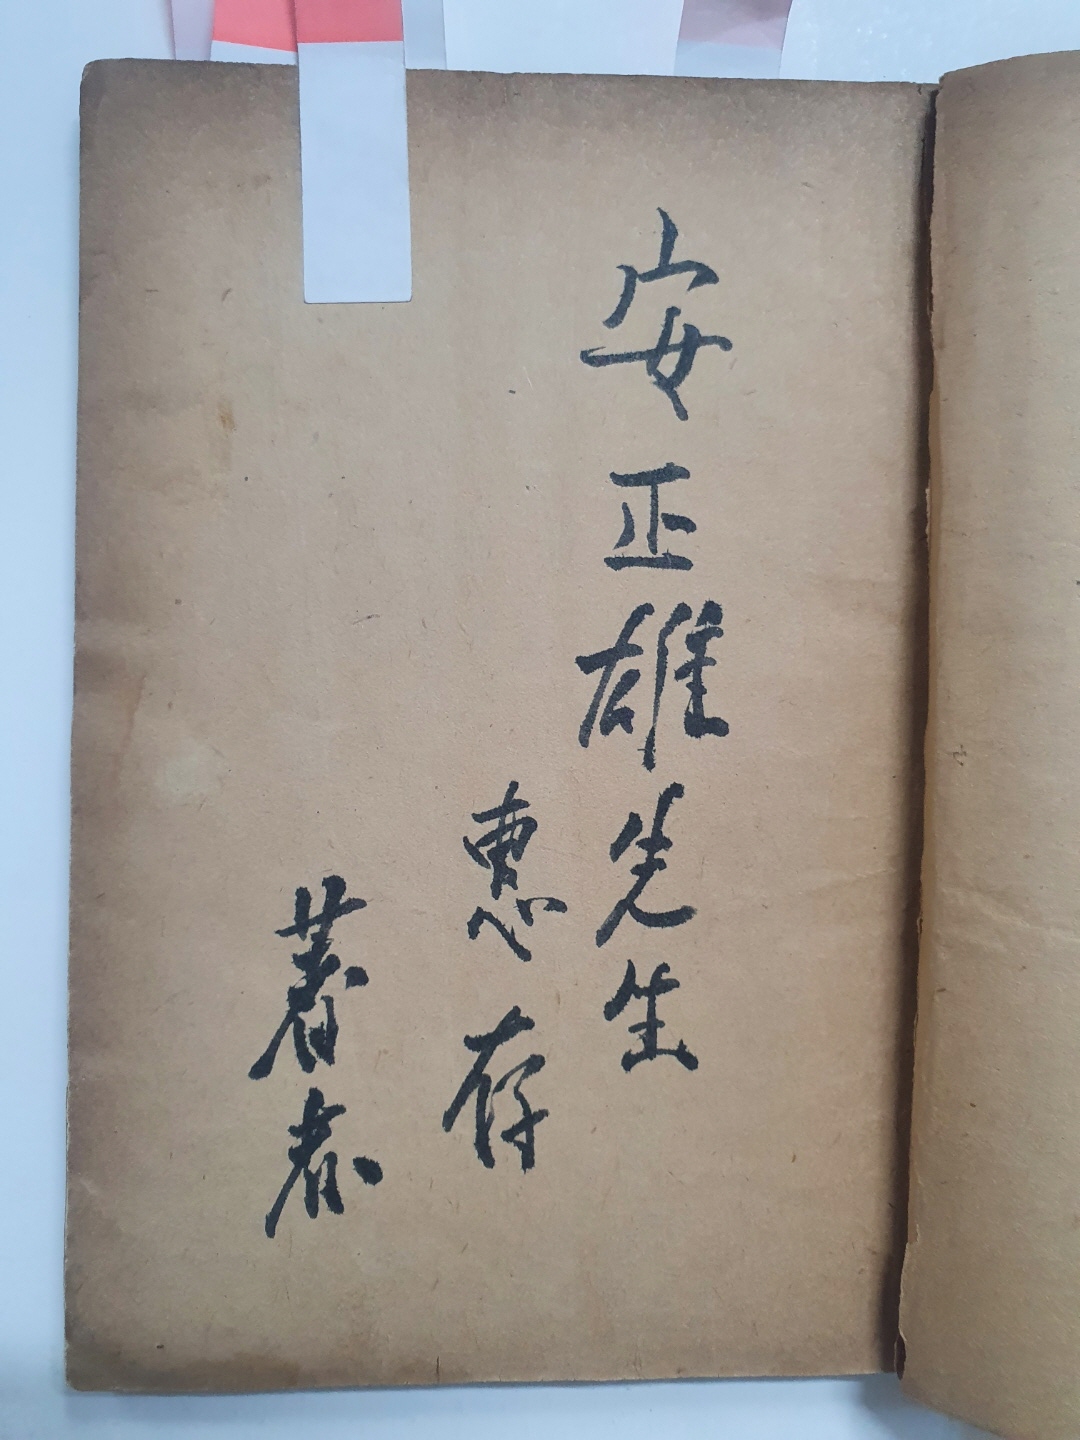 安正雄先生
惠存
著者